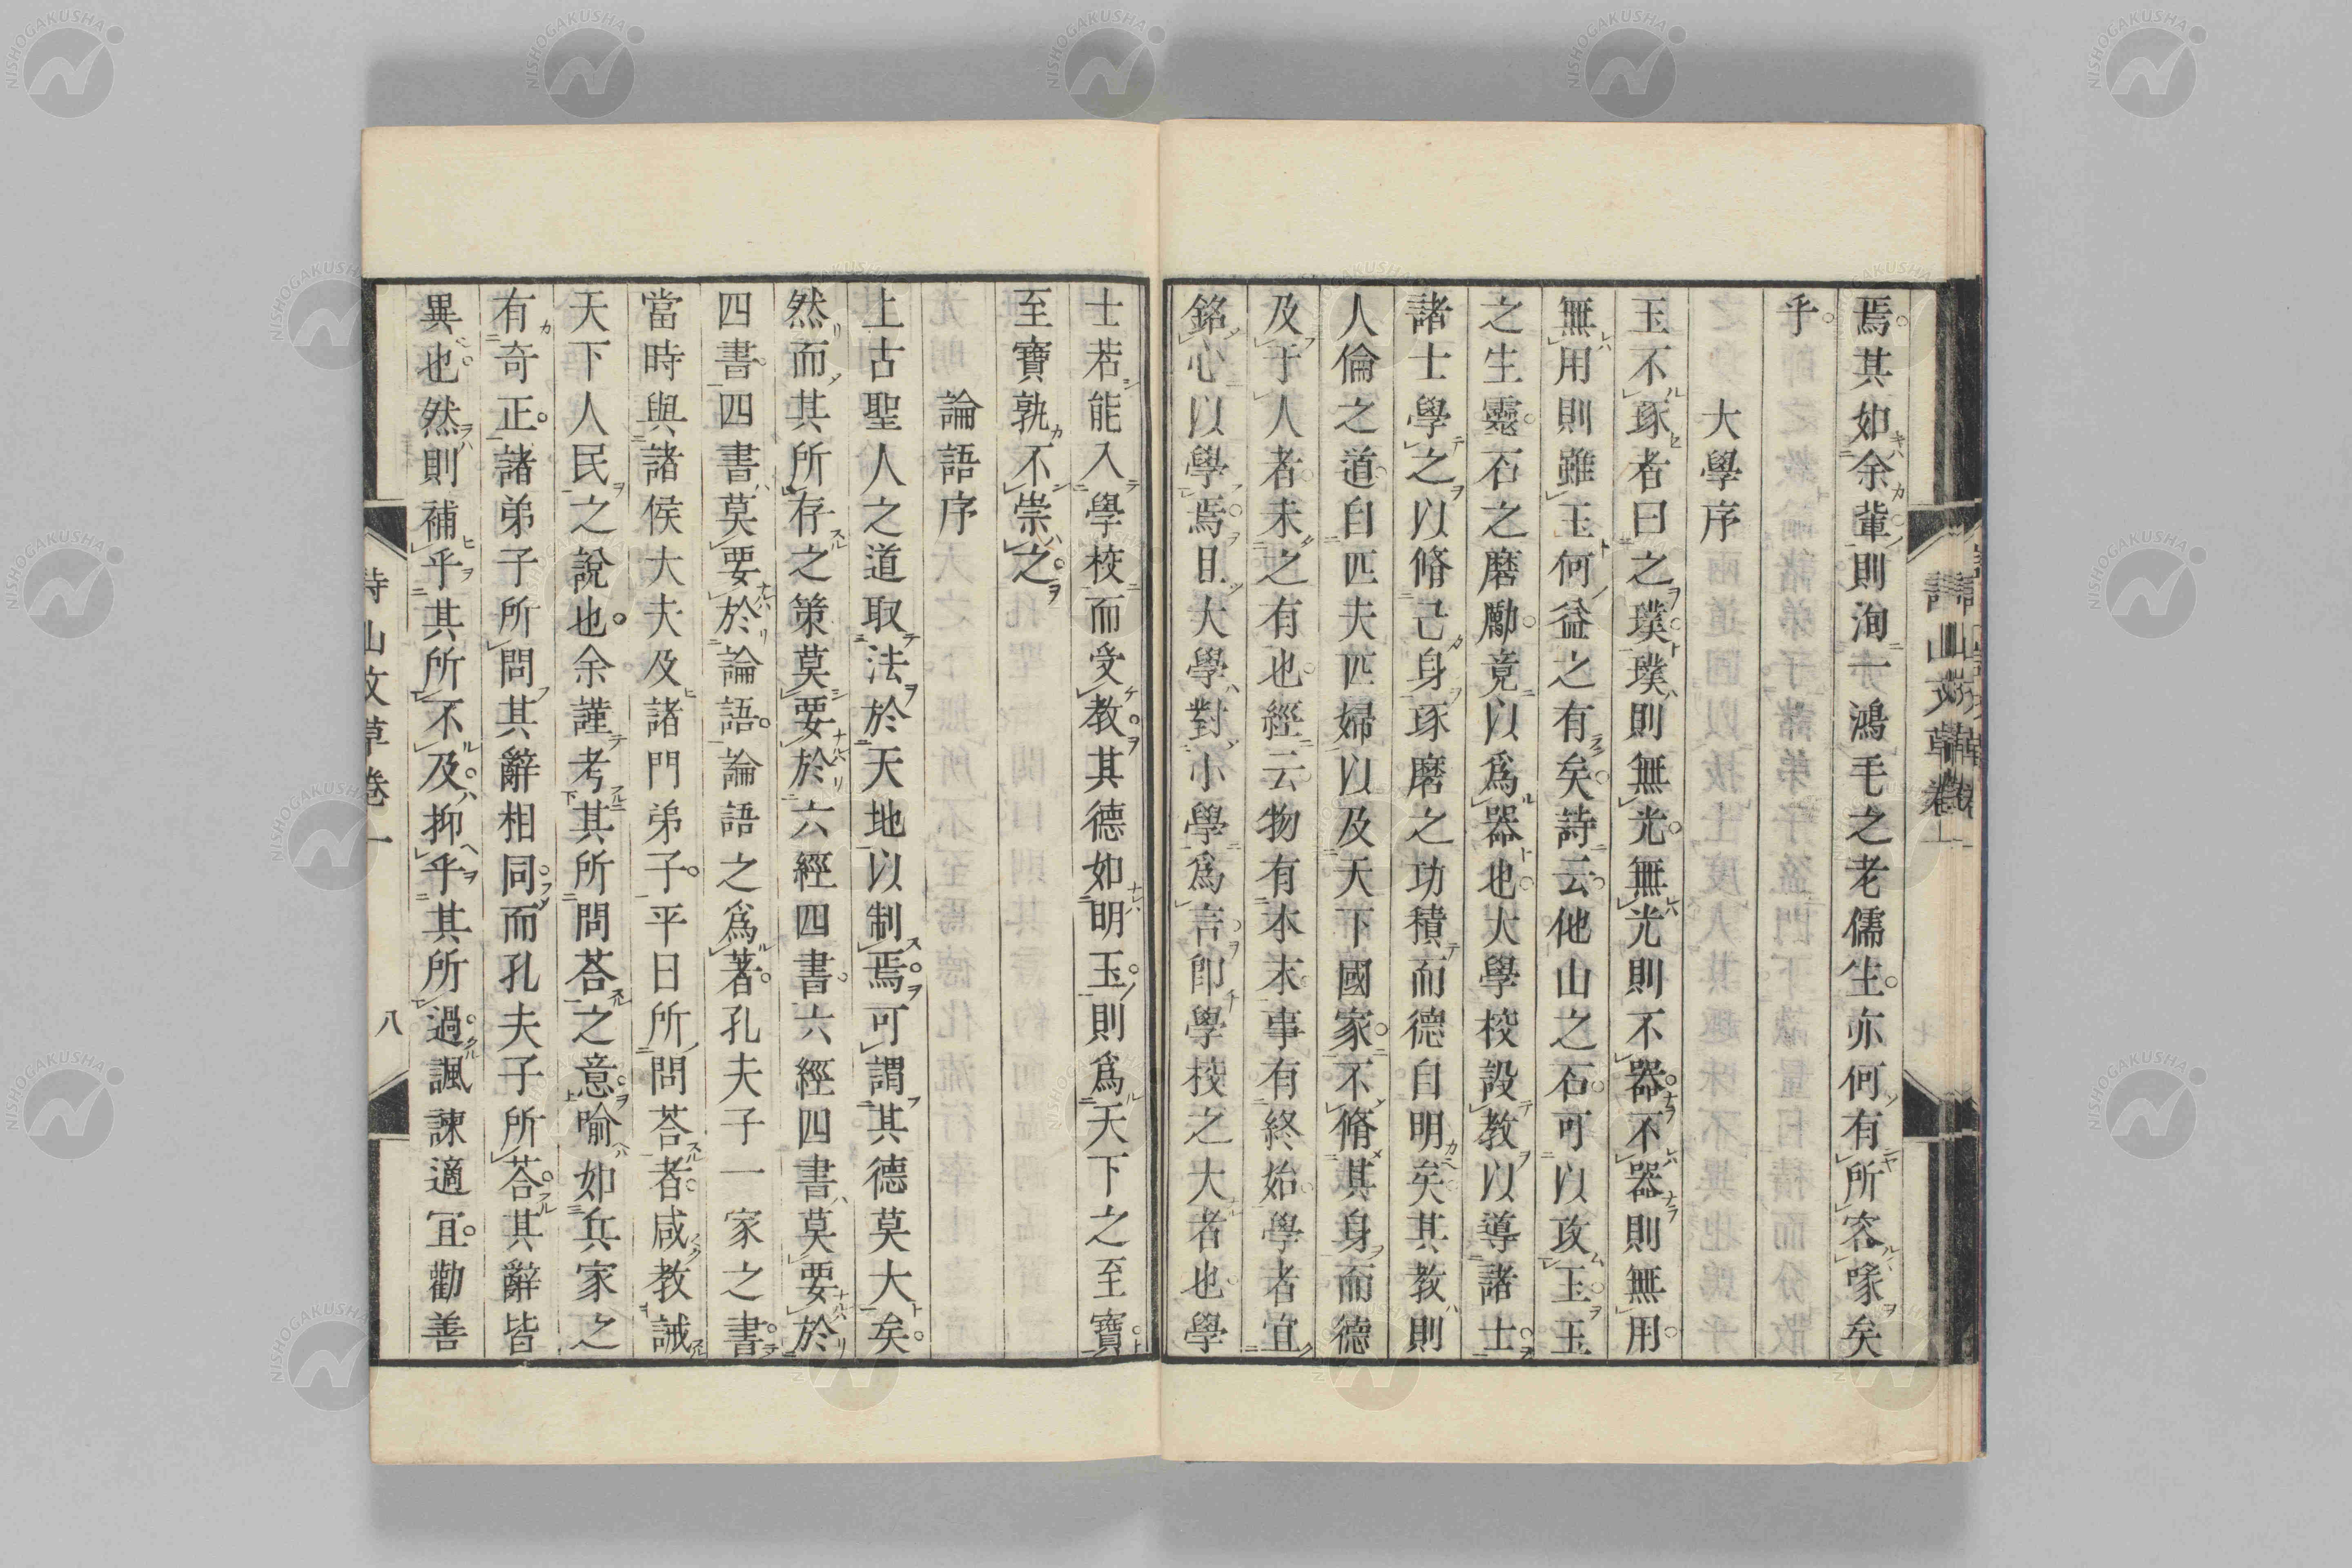 焉其如余輩則洵一鴻毛之老儒生亦何有所容喙矣
乎
大學序
玉不琢者曰之璞璞則無光無光則不器不器則無用
無用則雖玉何益之有矣詩云他山之石可以攻玉玉
之生靈石之磨勵竟以爲器也大學校設教以導諸士
諸士學之以脩己身琢磨之功積而德自明矣其教則
人倫之道自匹夫匹婦以及天下國家不脩其身而德
及于人者未之有也經云物有本末事有終始學者宜
銘心以學焉且大學對小學爲言卽學校之大者也學
士若能入學校而受教其德如明玉則爲天下之至寶
至寶孰不崇之
論語序
上古聖人之道取法於天地以制焉可謂其德莫大矣
然而其所存之策莫要於六經四書六經四書莫要於
四書四書莫要於論語論語之爲著孔夫子一家之書
當時與諸侯大夫及諸門弟子平日所問荅者咸教誡
天下人民之說也余謹考其所問荅之意喻如兵家之
有奇正諸弟子所問其辭相同而孔夫子所荅其辭皆
異也然則補乎其所不及抑乎其所過諷諫適宜勸善
詩山文草卷一
八